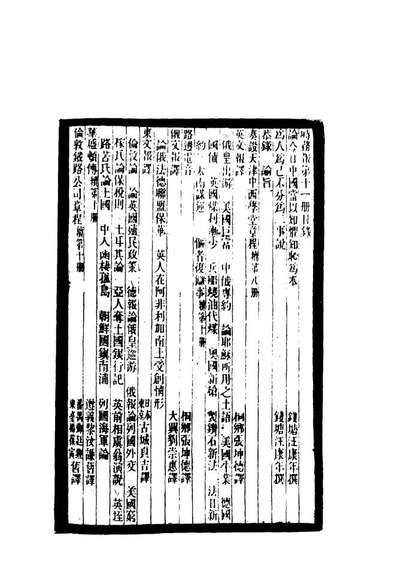 時務報第十一冊目錄
論今日中國當以知懼知恥為本 錢塘汪康年撰
為人為己不分為二事說 錢塘汪康年撰
恭錄 諭旨
奏設天津中西學堂章程 續第八冊
英文報譯 桐鄉張坤德譯
俄皇出游 美國巨富 中俄專約 論耶穌所用之土語 美國牛業 德國
國債 英國煤利漸少 兵船燒油代煤 奧國新槍 製鑽石新法 法日新
約 太南謀逆 復 第十冊
路透電音 桐鄉張坤德譯
俄文報譯 大興劉崇惠譯
論俄法德聯盟保華 英人在阿非利加南土受創情形
東文報譯 日本 古城貞吉譯
倫敦論 論英國殖民政策 德報論俄皇巡游 俄報論列國外交 美國窮
論保稅則 土耳其論 亞人奪土國銀行記 英前相虞翁演說 英
路苦氏論土國 中人函棲孤島 朝鮮國鎮南浦 列國海軍論
華盛頓傳 續第十冊 遵義黎汝謙舊譯
倫敦鐵路公司章程 續第十冊 舊譯